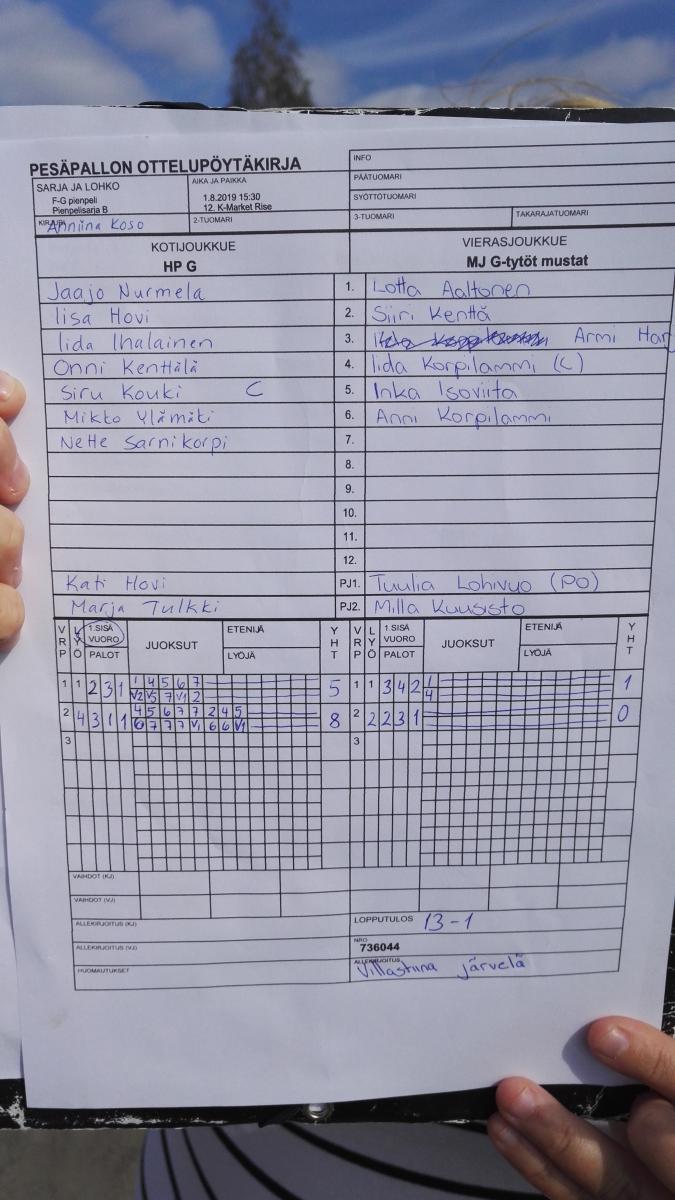 PESÄPALLON OTTELUPÖYTÄKIRJA
INFO
SARJA JA LOHKO
F-G pienpeli
Pienpelisarja B
AIKA JA PAIKKA
1.8.2019 15:30
12. K-Market Rise
PÄÄTUOMARI
SYÖTTÖTUOMARI
KIRJURI Anniina Koso
2-TUOMARI
3-TUOMARI
TAKARAJATUOMARI
KOTIJOUKKUE
HP G
VIERASJOUKKUE
MJ G-tytöt mustat
Jaajo Nurmela 1. Lotta Aaltonen
Iisa Hovi 2. Siiri Kenttä
Iida Ihalainen 3. Armi Har
Onni Kenttälä 4. Iida Korpilammi (C)
Siru Kouki C 5. Inka Isoviita
Mikko Ylämäki 6. Anni Korpilammi
Nette Sarnikorpi 7.
8.
9.
10.
11.
12.
Kati Hovi PJ1. Tuulia Lohivuo (PO)
Marja Tulkki PJ2. Milla Kuusisto
VRP LYÖ 1.SISÄ VUORO PALOT JUOKSUT ETENIJÄ LYÖJÄ YHT VRP LYÖ 1.SISÄ VUORO PALOT JUOKSUT ETENIJÄ LYÖJÄ YHT
1 1 2 3 1 1 4 5 6 7 5 1 1 3 4 2 1 1
V2 V5 7 V1 2 4
2 4 3 1 1 4 5 6 7 7 2 4 5 8 2 2 2 3 1 0
6 7 7 7 V1 6 6 V1
3 3
VAIHDOT (KJ)
VAIHDOT (VJ)
ALLEKIRJOITUS (KJ)
LOPPUTULOS 13-1
ALLEKIRJOITUS (VJ)
NRO
736044
HUOMAUTUKSET
ALLEKIRJOITUS
Villastiina Järvelä